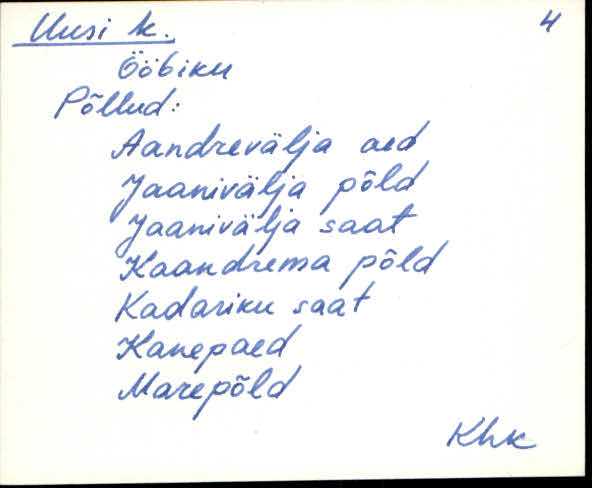 Uusi k. 4
Ööbiku
Põllud:
Aandrevälja aed
Jaanivälja põld
Jaanivälja saat
Kaandrema põld
Kadariku saat
Kanepaed
Marepõld
Khk